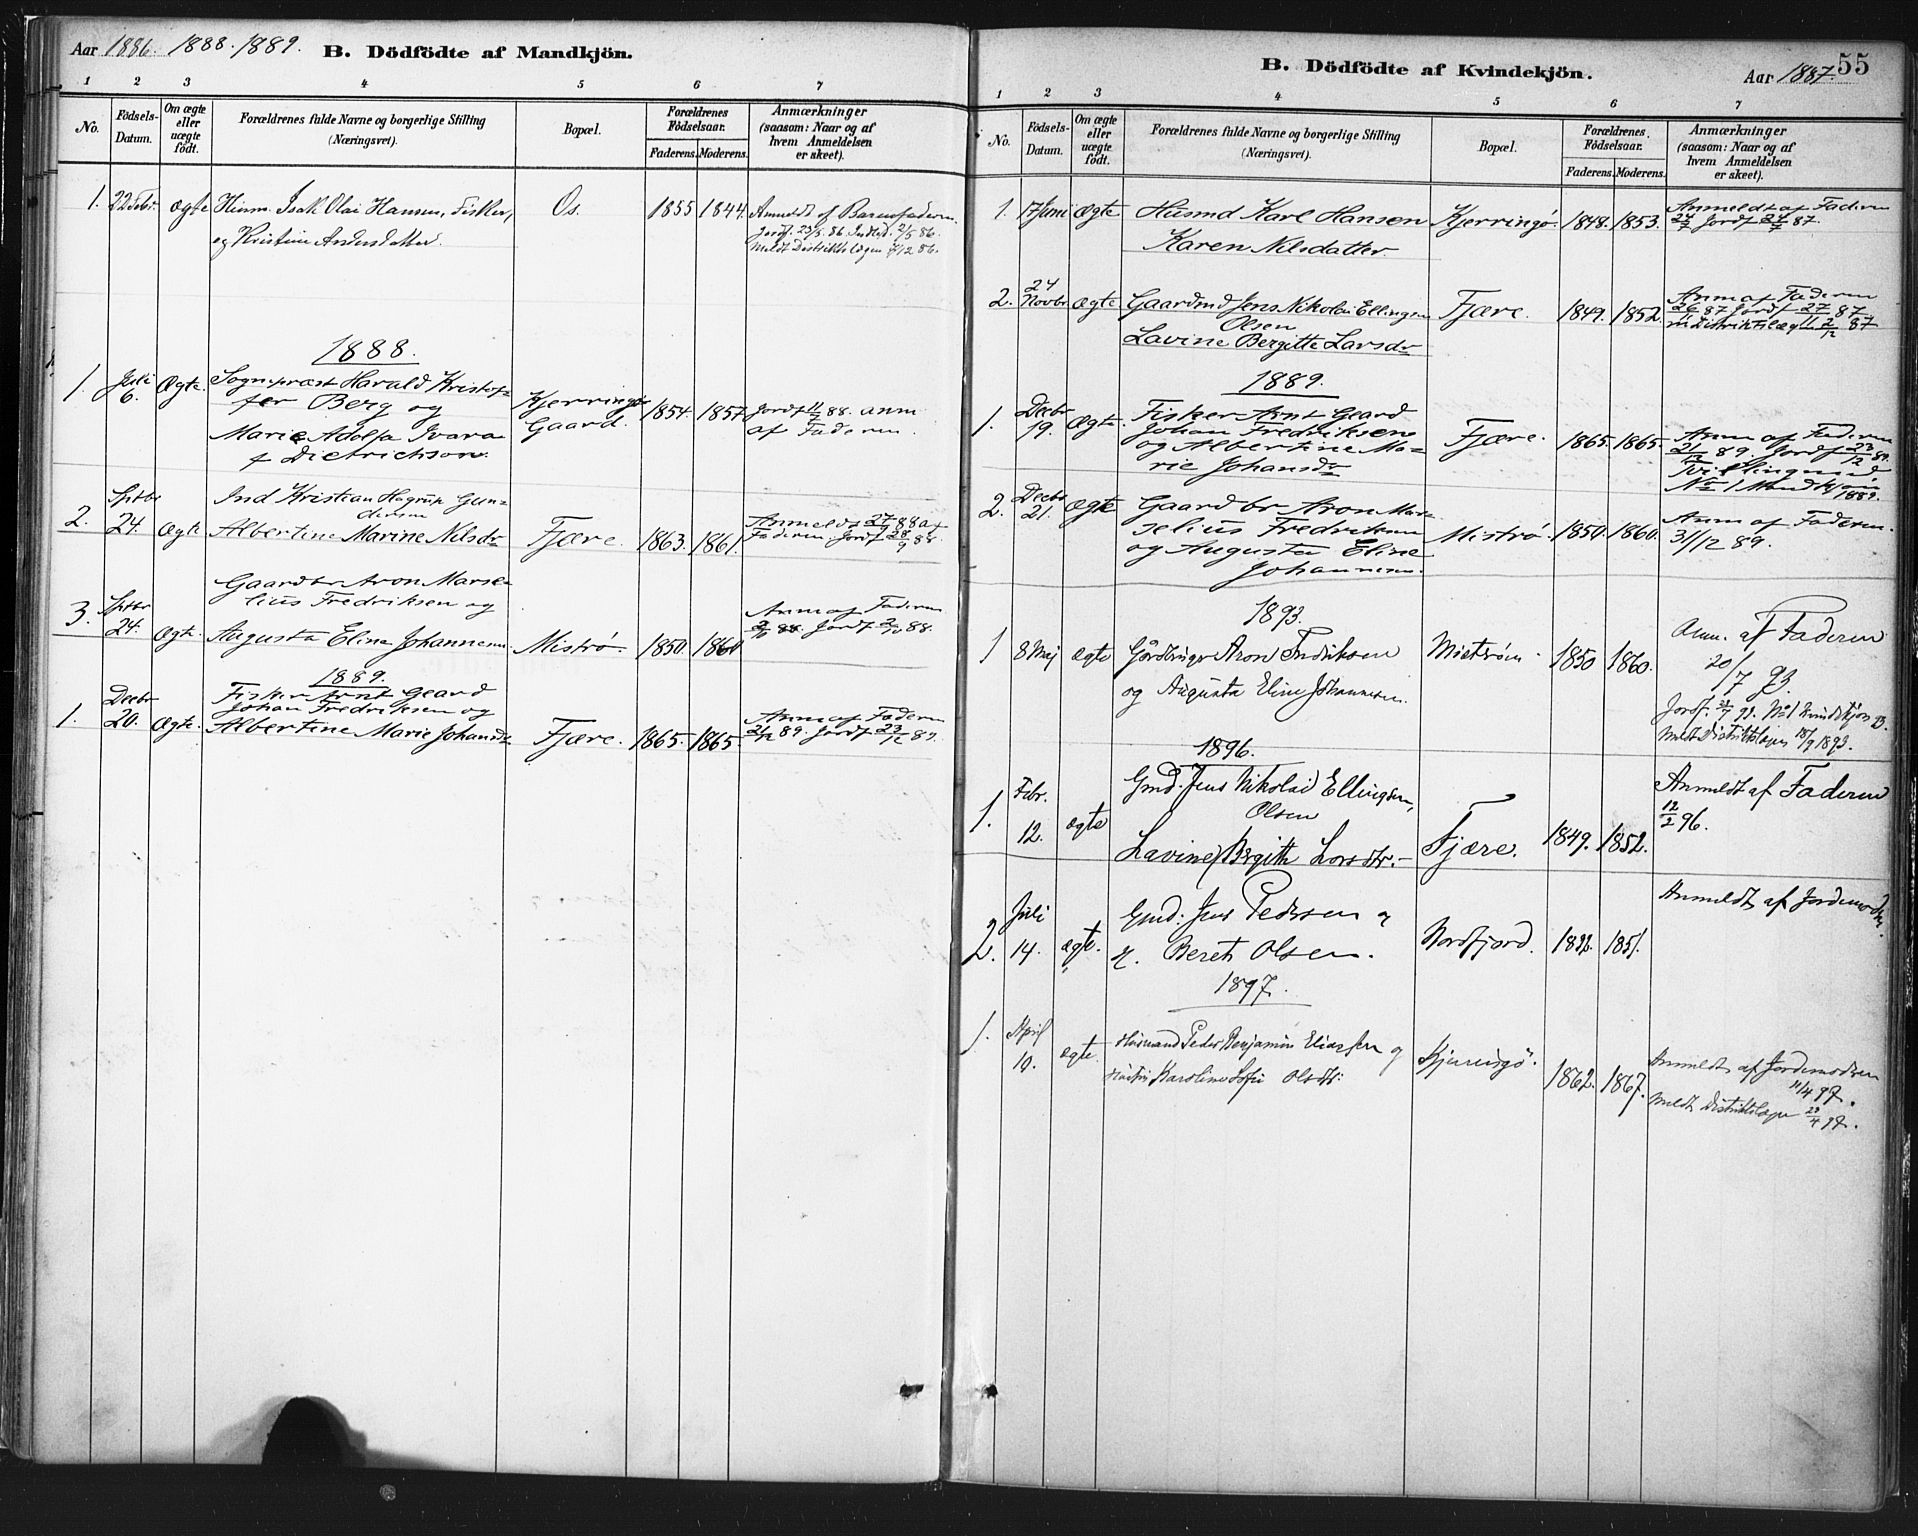 Aar 1886. 1888. 1889. B. Dödfödte af Mandkjön.
1 2 3 4 5 6 7
No. Födsels-Datum. Om ægte eller uægte födt. Forældrenes fulde Navne og borgerlige Stilling (Næringsvei). Bopæl. Forældrenes Födselsaar. Faderens. Moderens. Anmærkninger (saasom: Naar og af hvem Anmeldelsen er skeet).
1. 22 Febr. ægte Isak Olai Hansen, Fisker, Os. 1855 1844. Anmeldt af Barnefaderen
og Kristine Andersdatter. Jordf. 23/5 86. 2/5 86.
meldt Distriktslægen /12 86.
1888.
1. Juli 6. Ægte. Sognepræst Harald Kristof-
fer Berg og Kjerringø Gaard. 1854. 1857. Jordf 11/7 88. anm
Marie Adolfa Ivara af Faderen.
f Dietrichson.
2. Sptbr 24. Ægte Ind Kristian Hagrup Gun-
dersen
Albertine Marine Nilsdr Fjære. 1863. 1861. Anmeldt 27/9 88 af
Faderen. Jordf 28/9 88.
3. Sptbr 24. Ægte. Gaardbr Aron Marse-
lius Fredriksen og
Augusta Elina Johannesen Mistrø. 1850. 1860 Anm af Faderen
2/10 88. Jordf 2/10 88.
1889.
1. Decbr 20. Ægte. Fisker Arnt Geard
Johan Fredriksen og
Albertine Marie Johansdr Fjære. 1865. 1865. Anm af Faderen
21/12 89. Jordf 23/12 89.
B. Dödfödte af Kvindekjön. Aar 1887. 55
1 2 3 4 5 6 7
No. Födsels-Datum. Om ægte eller uægte födt. Forældrenes fulde Navne og borgerlige Stilling (Næringsvei). Bopæl. Forældrenes Födselsaar. Faderens. Moderens. Anmærkninger (saasom: Naar og af hvem Anmeldelsen er skeet).
1. 17 Juni Ægte Husmd Karl Hansen Kjerringø 1848. 1853. Anmeldt af Faderen
Karen Nilsdatter. 24/7 Jordf 24/7 87.
2. 24 Novbr. Ægte Gaardmd Jens Nikolai Ellingsen
Olsen Fjære. 1849. 1852. Anm af Faderen
26/11 87 Jordf 27/11 87
Lavine Bergitte Larsdr m Distriktslæg 2/12 87
1889.
1. Decbr 19. Ægte. Fisker Arnt Geard
Johan Fredriksen
og Albertine Ma-
rie Johansdr Fjære. 1865. 1865. Anm af Faderen
21/12 89. Jordf 23/12 89.
Tvilling med
No 1 Mandkjøn
1889.
2. Decbr 21. Ægte Gaardbr Aron Mar-
selius Fredriksen
og Augusta Eline
Johannesen. Mistrø. 1850. 1860. Anm af Faderen.
31/12 89.
1893.
1 8 Maj ægte Gårdbruger Aron Fredriksen Mistrøen 1850 1860. Anm. af Faderen
og Augusta Eline Johannesen. 20/7 93.
Jordf. 93. No 1 Kvindekjøn B.
Meldt Distriktslægen 18/9 1893.
1896.
1. Febr. 12. ægte Gmd. Jens Nikolai Ellingsen,
Olsen
Lavine Bergith Larsdtr. Fjære. 1849. 1852. Anmeldt af Faderen
12/2 96.
2. Juli 14. ægte. Gmd. Jens Pedersen og
H. Beret Olsen. Nordfjord. 1851. Anmeldt af Jordemoder.
1897.
1. April 10. ægte. Husmand Peder Benjamin Eliassen og
Hustru Karoline Sofie Olsdtr: Kjerringø. 1862. 1867. Anmeldt af Jordemoderen
11/4 97.
Meldt Distriktslægen 23/4 97.